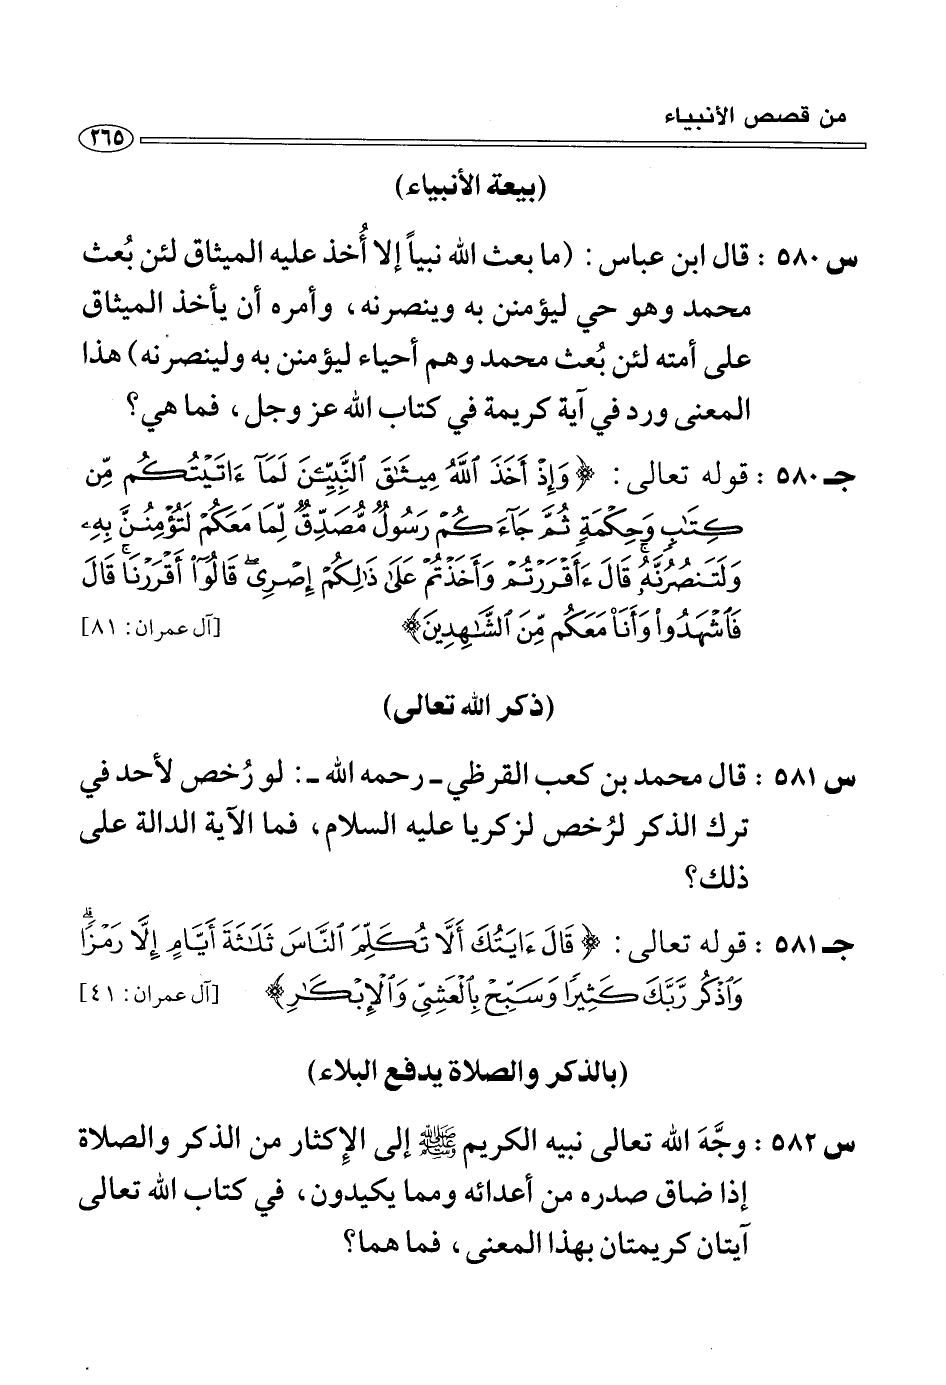 من قصص الأنبياء
٢٦٥
(بيعة الأنبياء)
س ٥٨٠ : قال ابن عباس : (ما بعث الله نبياً إلا أُخذ عليه الميثاق لئن بُعث
محمد وهو حي ليؤمنن به وينصرنه، وأمره أن يأخذ الميثاق
على أمته لئن بُعث محمد وهم أحياء ليؤمنن به ولينصرنه) هذا
المعنى ورد في آية كريمة في كتاب الله عز وجل، فما هي؟
جـ ٥٨٠ : قوله تعالى : ﴿ وَإِذْ أَخَذَ ٱللَّهُ مِيثَٰقَ ٱلنَّبِيِّـۧنَ لَمَآ ءَاتَيْتُكُم مِّن
كِتَٰبٍ وَحِكْمَةٍ ثُمَّ جَآءَكُمْ رَسُولٌ مُّصَدِّقٌ لِّمَا مَعَكُمْ لَتُؤْمِنُنَّ بِهِۦ
وَلَتَنصُرُنَّهُۥ ۚ قَالَ ءَأَقْرَرْتُمْ وَأَخَذْتُمْ عَلَىٰ ذَٰلِكُمْ إِصْرِى ۖ قَالُوٓا۟ أَقْرَرْنَا ۚ قَالَ
فَٱشْهَدُوا۟ وَأَنَا۠ مَعَكُم مِّنَ ٱلشَّٰهِدِينَ﴾ [آل عمران: ٨١]
(ذكر الله تعالى)
س ٥٨١ : قال محمد بن كعب القرظي ـ رحمه الله ـ : لو رُخص لأحد في
ترك الذكر لرُخص لزكريا عليه السلام، فما الآية الدالة على
ذلك؟
جـ ٥٨١ : قوله تعالى : ﴿ قَالَ ءَايَتُكَ أَلَّا تُكَلِّمَ ٱلنَّاسَ ثَلَٰثَةَ أَيَّامٍ إِلَّا رَمْزًا ۗ
وَٱذْكُر رَّبَّكَ كَثِيرًا وَسَبِّحْ بِٱلْعَشِىِّ وَٱلْإِبْكَٰرِ﴾ [آل عمران: ٤١]
(بالذكر والصلاة يدفع البلاء)
س ٥٨٢ : وجَّهَ الله تعالى نبيه الكريم ﷺ إلى الإكثار من الذكر والصلاة
إذا ضاق صدره من أعدائه ومما يكيدون، في كتاب الله تعالى
آيتان كريمتان بهذا المعنى، فما هما؟